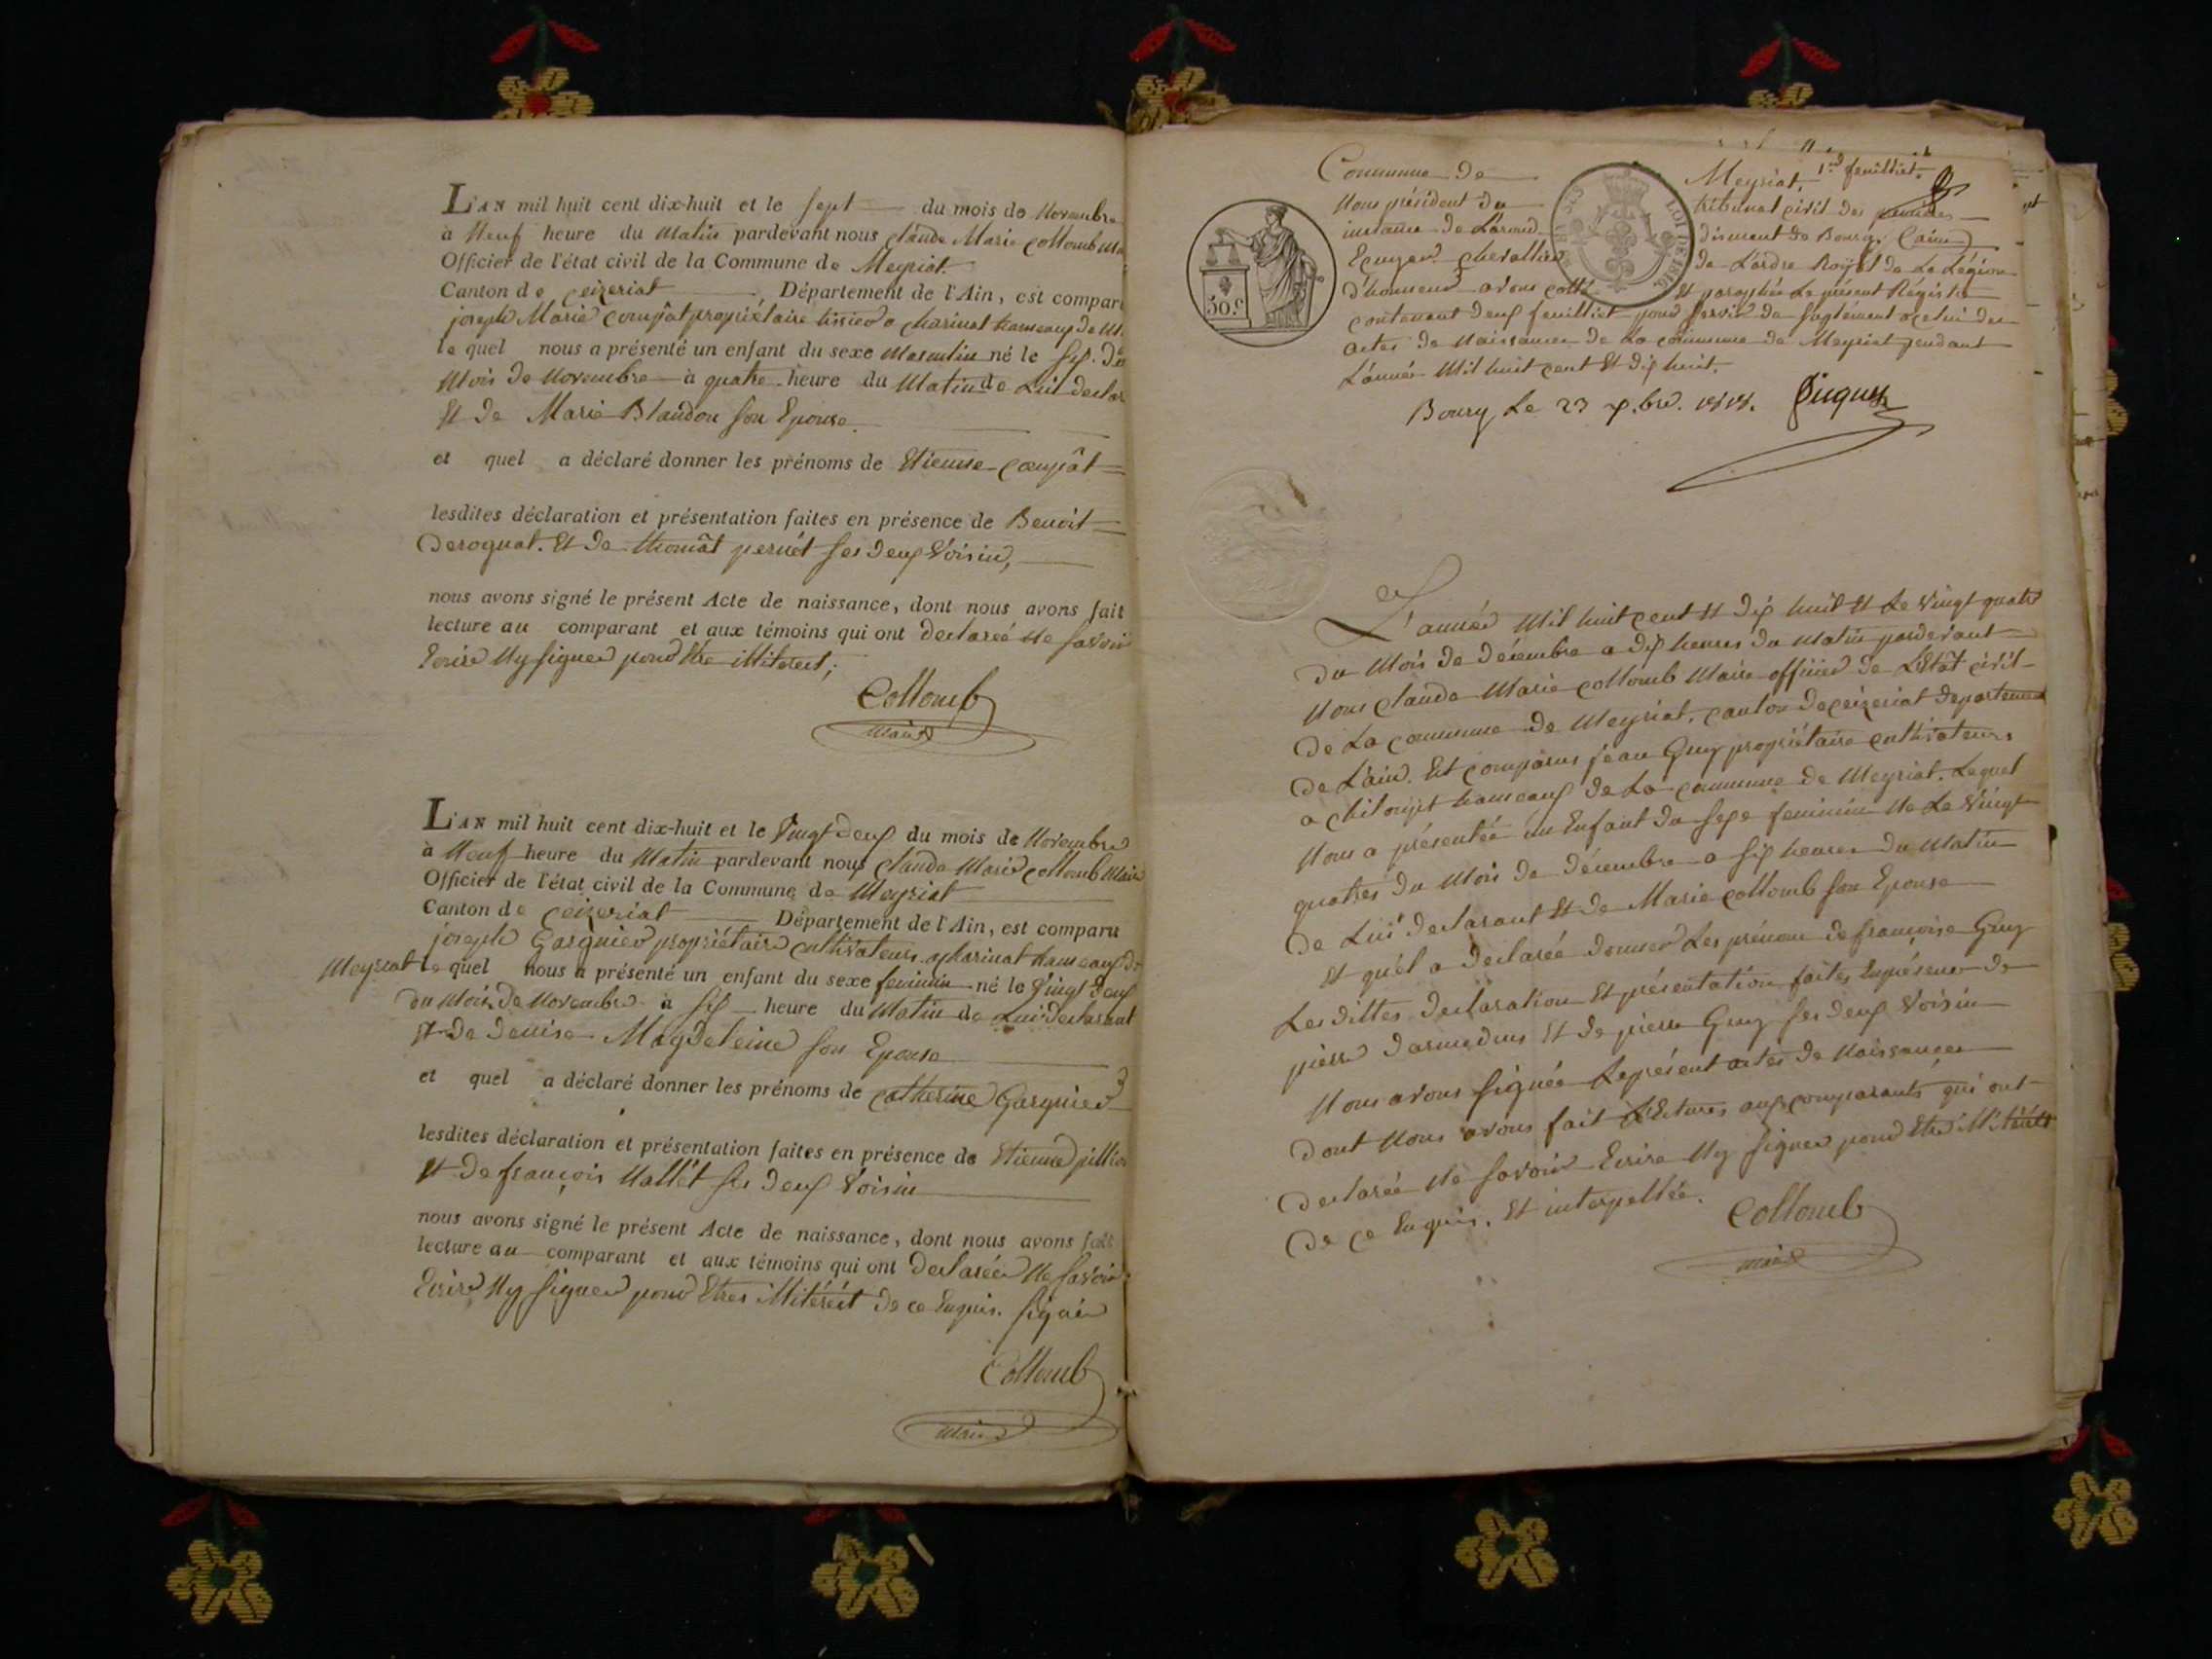 L'AN mil huit cent dix-huit et le sept du mois de Novembre
à Neuf heure du Matin pardevant nous Claude Marie Collomb
Officier de l'état civil de la Commune de Meyriat.
Canton de Ceizeriat Département de l'Ain, est comparu
joseph Marie propriétaire a charinat hameaux de
le quel nous a présenté un enfant du sexe Masculin né le sep. du
Mois de Novembre à quatre heure du Matin de Lui declar
Et de Marie Blandon son Epouse.
et quel a déclaré donner les prénoms de Etienne
lesdites déclaration et présentation faites en présence de Benoit
Derognat. Et de thomât pernét ses deux Voisin,
nous avons signé le présent Acte de naissance, dont nous avons fait
lecture au comparant et aux témoins qui ont declareé Ne savoir
Ecrire Ny signer pour Etre illiteret;
Collomb
maire
L'AN mil huit cent dix-huit et le Vingt deux du mois de Novembre
à Neuf heure du Matin pardevant nous Claude Marie Collomb Maire
Officier de l'état civil de la Commune de Meyriat
Canton de Ceizeriat Département de l'Ain, est comparu
joseph Gargnier propriétaire cultivateurs a charinat hameaux de
Meyriat le quel nous a présenté un enfant du sexe feminin né le Vingt deux
du Mois de Novembre à six heure du Matin de Lui Declarant
Et de Denise Magdeleine son Epouse
et quel a déclaré donner les prénoms de Catherine Gargnier
lesdites déclaration et présentation faites en présence de Etienne
Et de françois Mallét ses deux Voisin
nous avons signé le présent Acte de naissance, dont nous avons fait
lecture au comparant et aux témoins qui ont declareé Ne savoir
Ecrire Ny signer pour Etres illiterét de ce Enquis. signé
Collomb
maire
Commune de Meyriat. 1er feuillet.
Nous président du tribunal civil de premiere
instance de L'arrond dissement de Bourg (ain)
Ecuyer chevallier de L'ordre Royal de La Légion
d'honneur avons cotté Et paraphé Le présent Régistre
contenant deux feuillet pour servir de suplément a celui des
actes de Naissances de La commune de Meyriat pendant
L'année Mil huit cent Et dix huit.
Bourg Le 23 Xbre. 1818.
50 c.
LOI DE 1816
L'année Mil huit cent Et dix huit Et Le Vingt quatre
du Mois de décembre a dix heures du Matin pardevant
Nous Claude Marie Collomb Maire officier de L'Etât civil
de La commune de Meyriat. canton de ceizeriat departement
de L'ain. Est comparus jean Guy propriétaire cultivateurs
a hameaux de La commune de Meyriat. Lequel
Nous a présentée un Enfant du sexe feminin Ne Le Vingt
quatres du Mois de décembre a six heures du Matin
de Lui declarant Et de Marie Collomb son Epouse
Et quél a declareé donner Les prénom de françoise Guy
Les dittes declaration Et présentation faites En présence de
pierre Et de pierre Guy ses deux Voisin
Nous avons signée Le présent actes de Naissances
dont Nous avons fait Lectures aux comparants qui ont
declareé Ne savoir Ecrire Ny signer pour Etre illiterét
de ce Enquis. Et interpellée.
Collomb
maire